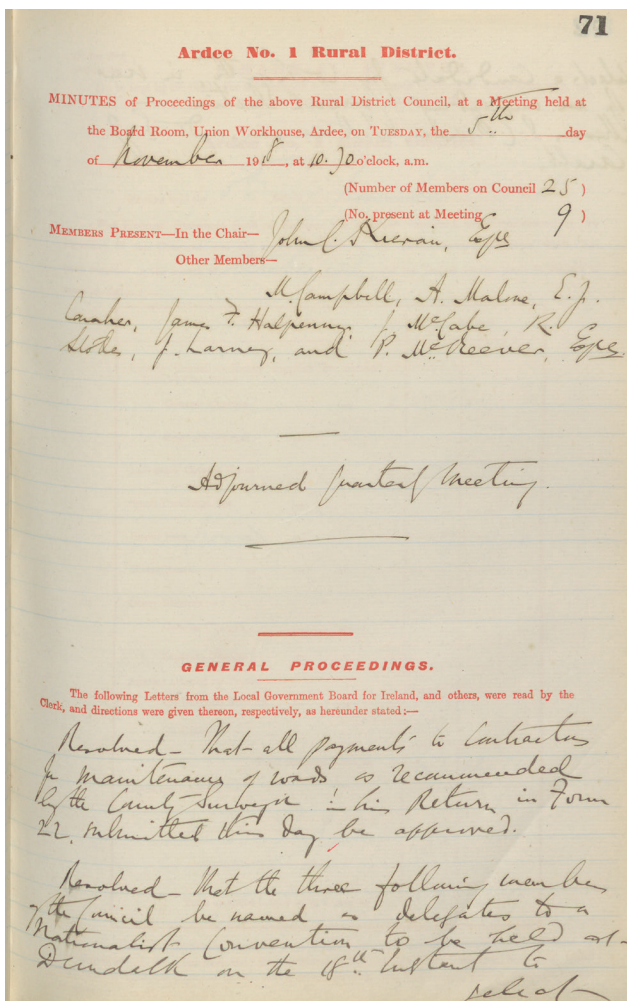 71
Ardee No. 1 Rural District.
MINUTES of Proceedings of the above Rural District Council, at a Meeting held at
the Board Room, Union Workhouse, Ardee, on TUESDAY, the 5th day
of November 1918, at 10.30 o'clock, a.m.
(Number of Members on Council 25)
(No. present at Meeting 9)
MEMBERS PRESENT—In the Chair— John C. Kieran, Esqr
Other Members—
M. Campbell, A. Malone, E. J.
Caraher, James F. Halpenny, J. McCabe, R.
Stokes, J. Larney, and P. McKeever, Esqrs.
Adjourned Quarterly Meeting.
GENERAL PROCEEDINGS.
The following Letters from the Local Government Board for Ireland, and others, were read by the
Clerk, and directions were given thereon, respectively, as hereunder stated:—
Resolved – That all payments to Contractors
for maintenance of roads as recommended
by the County Surveyor in his Return in Form
22, submitted this day be approved.
Resolved – That the three following members
of the Council be named as delegates to a
Nationalist Convention to be held at
Dundalk on the 18th Instant to
select